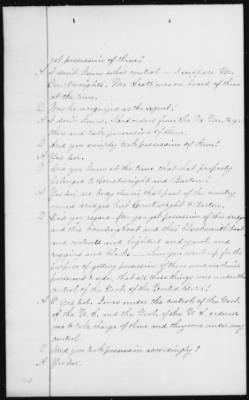 got possession of them?
A I don't know what control – I suppose Mr.
Courtwright. Mr. Scott was on board of them
at the time.
Q Was he recognized as the agent?
A I don't know, I had orders from to go
there and take possession of them.
Q And you simply took possession of them?
A Yes sir.
Q Did you know at the time that that property
belonged to Courtwright and Barton?
A Yes sir no body else in that part of the country
owned dredges but Courtwright & Barton.
Q Did you regard after you got possession of this dredge
and this boarding boat and this blacksmith boat
and and lighters and yawl and
rigging and blocks — when you went up for the
purpose of getting possession of them and
pursuant to order, that all these things were under the
control of the Govt. of the United States?
A O, yes sir. I was under the control of the Govt.
of the U. S. and the Govt. of the U. S. ordered
me to take charge of them and they were under my
control.
Q And you took possession accordingly?
A Yes sir.